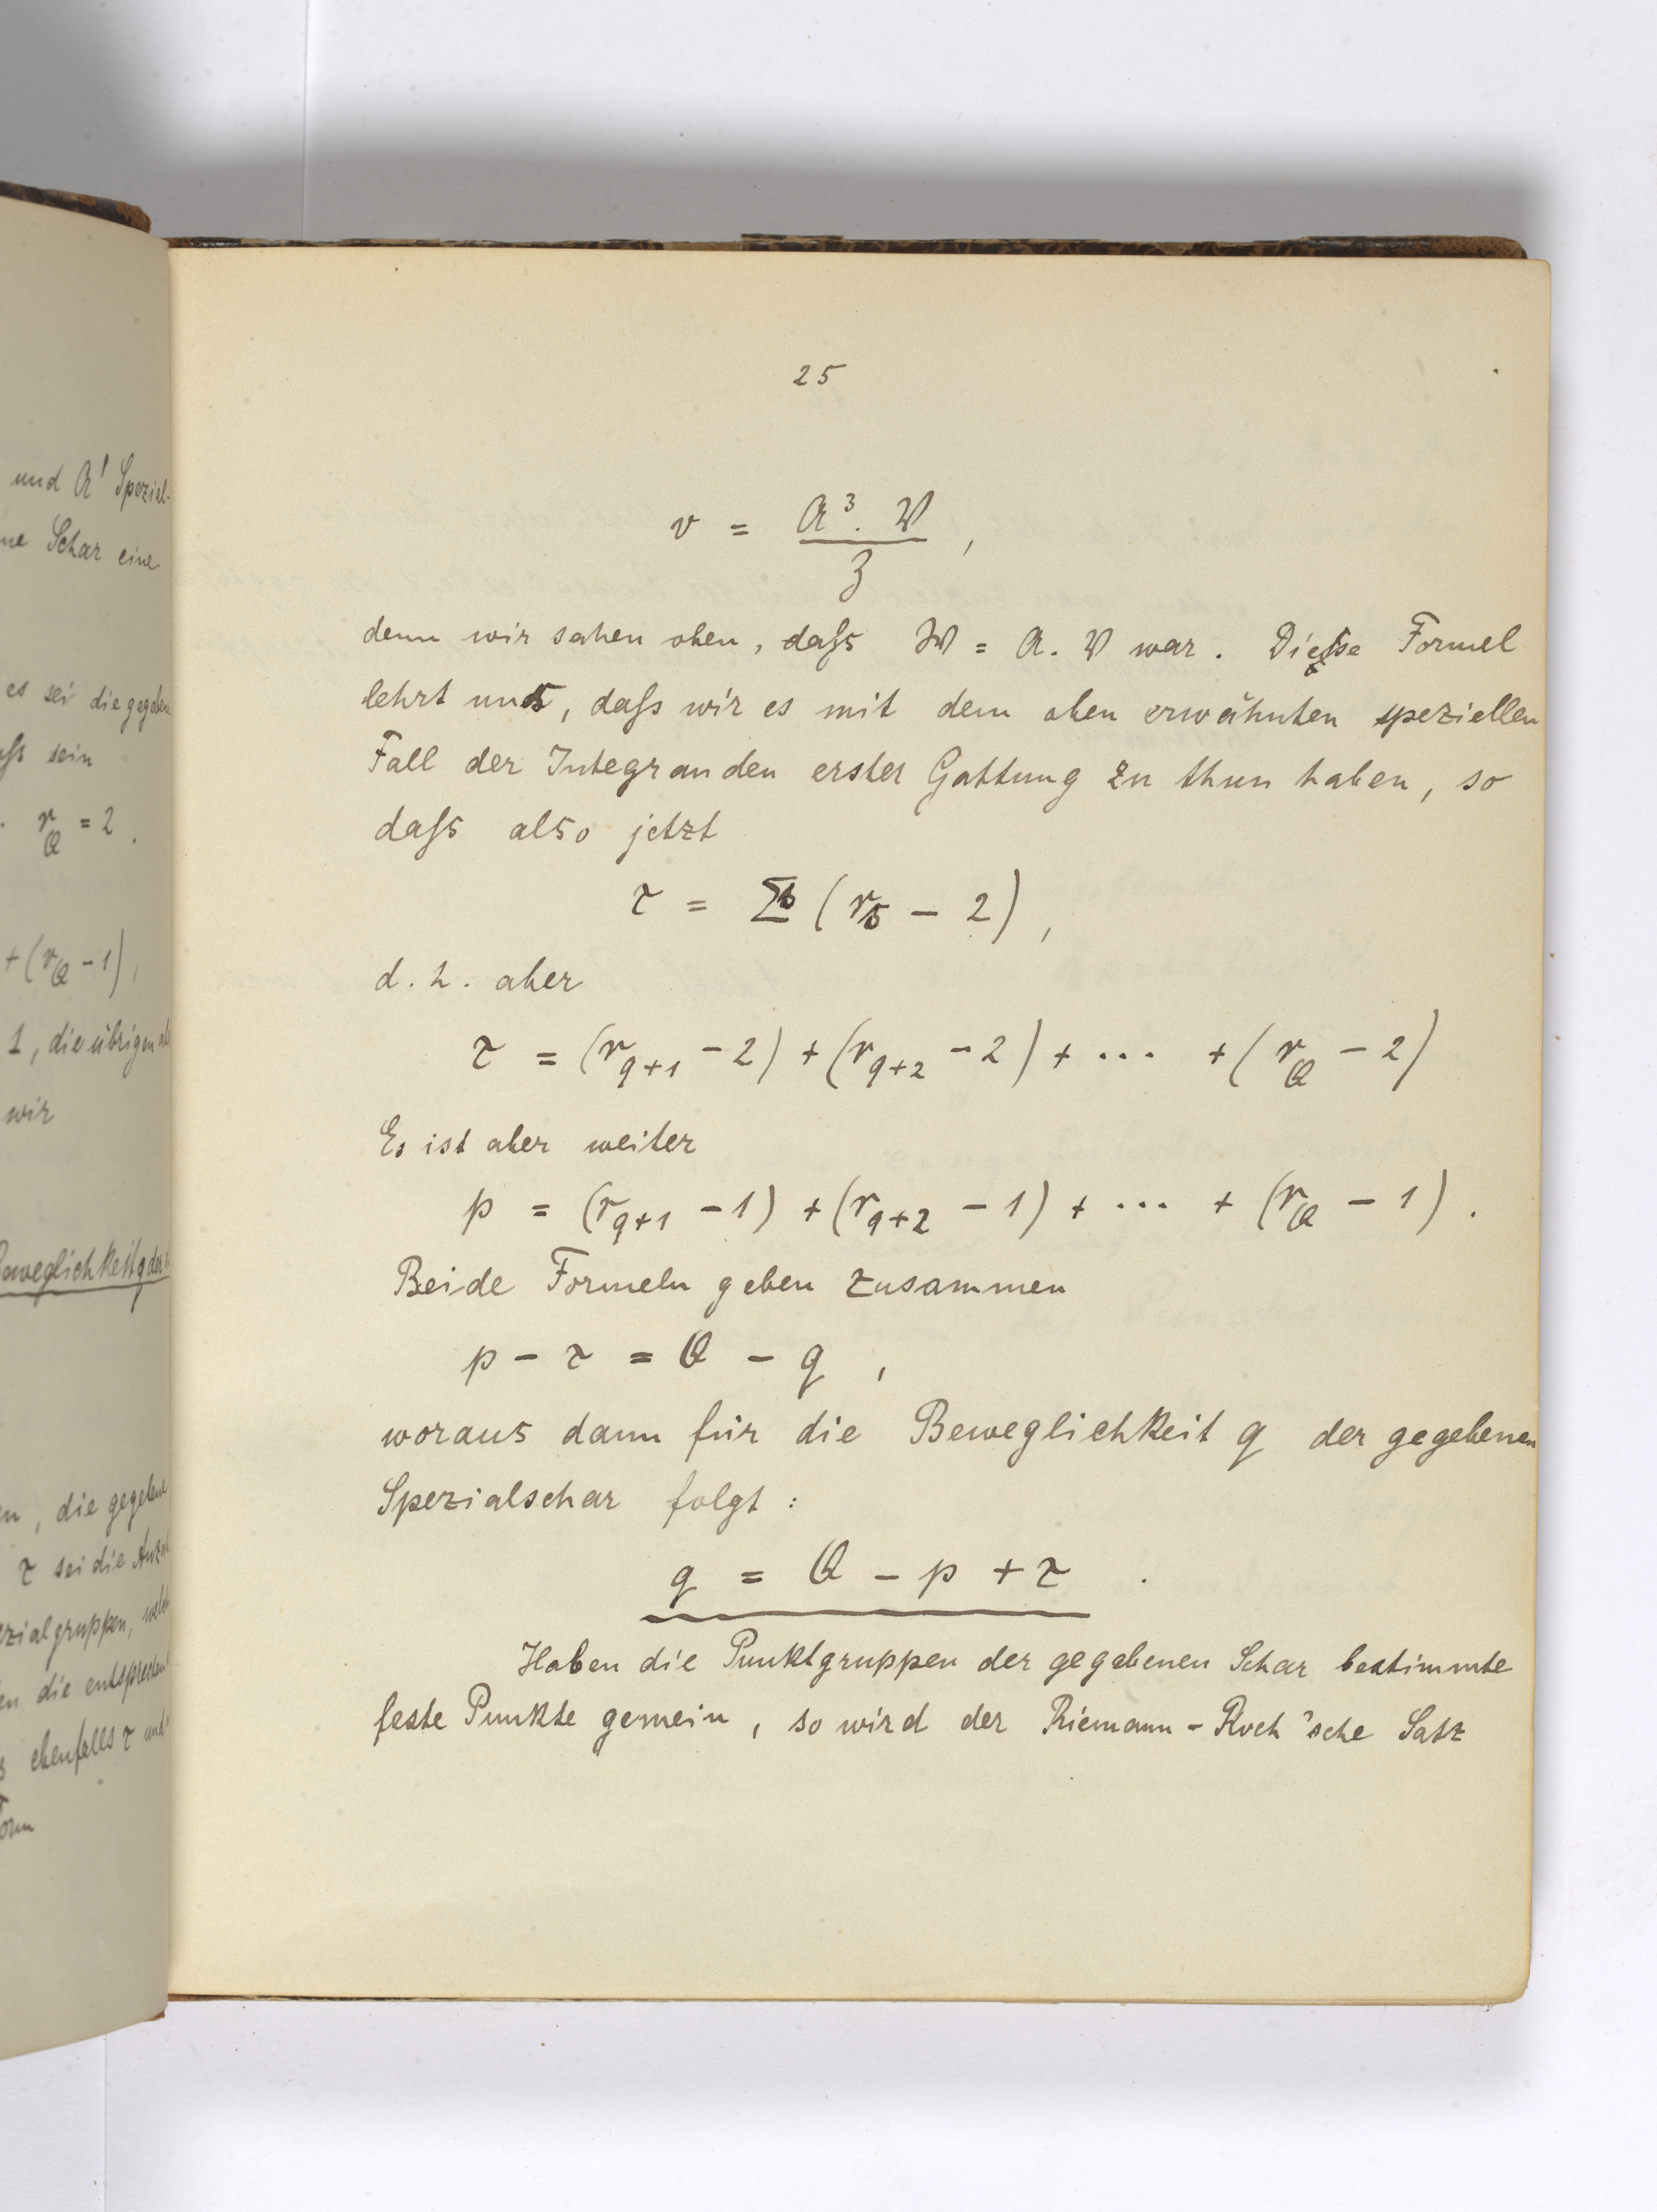 und 𝔄' Spezial-
ne Schar eine
es sei die gegeben
sein
r_Q = 2.
+ (r_Q - 1),
1, die übrigen
wir
Beweglichkeit q der
, die gegebene
τ sei die
gruppen,
die
ebenfalls τ und
25
v = 𝔄³. 𝔙 / 𝔷 ,
denn wir sahen oben, daſs 𝔚 = 𝔄. 𝔙 war. Diese Formel
lehrt uns, daſs wir es mit dem oben erwähnten speziellen
Fall der Integranden erster Gattung zu thun haben, so
daſs also jetzt
τ = Σ (r_s - 2),
d. h. aber
τ = (r_{q+1} - 2) + (r_{q+2} - 2) + ... + (r_Q - 2)
Es ist aber weiter
p = (r_{q+1} - 1) + (r_{q+2} - 1) + ... + (r_Q - 1).
Beide Formeln geben zusammen
p - τ = Q - q ,
woraus dann für die Beweglichkeit q der gegebenen
Spezialschar folgt :
q = Q - p + τ .
Haben die Punktgruppen der gegebenen Schar bestimmte
feste Punkte gemein, so wird der Riemann-Roch'sche Satz